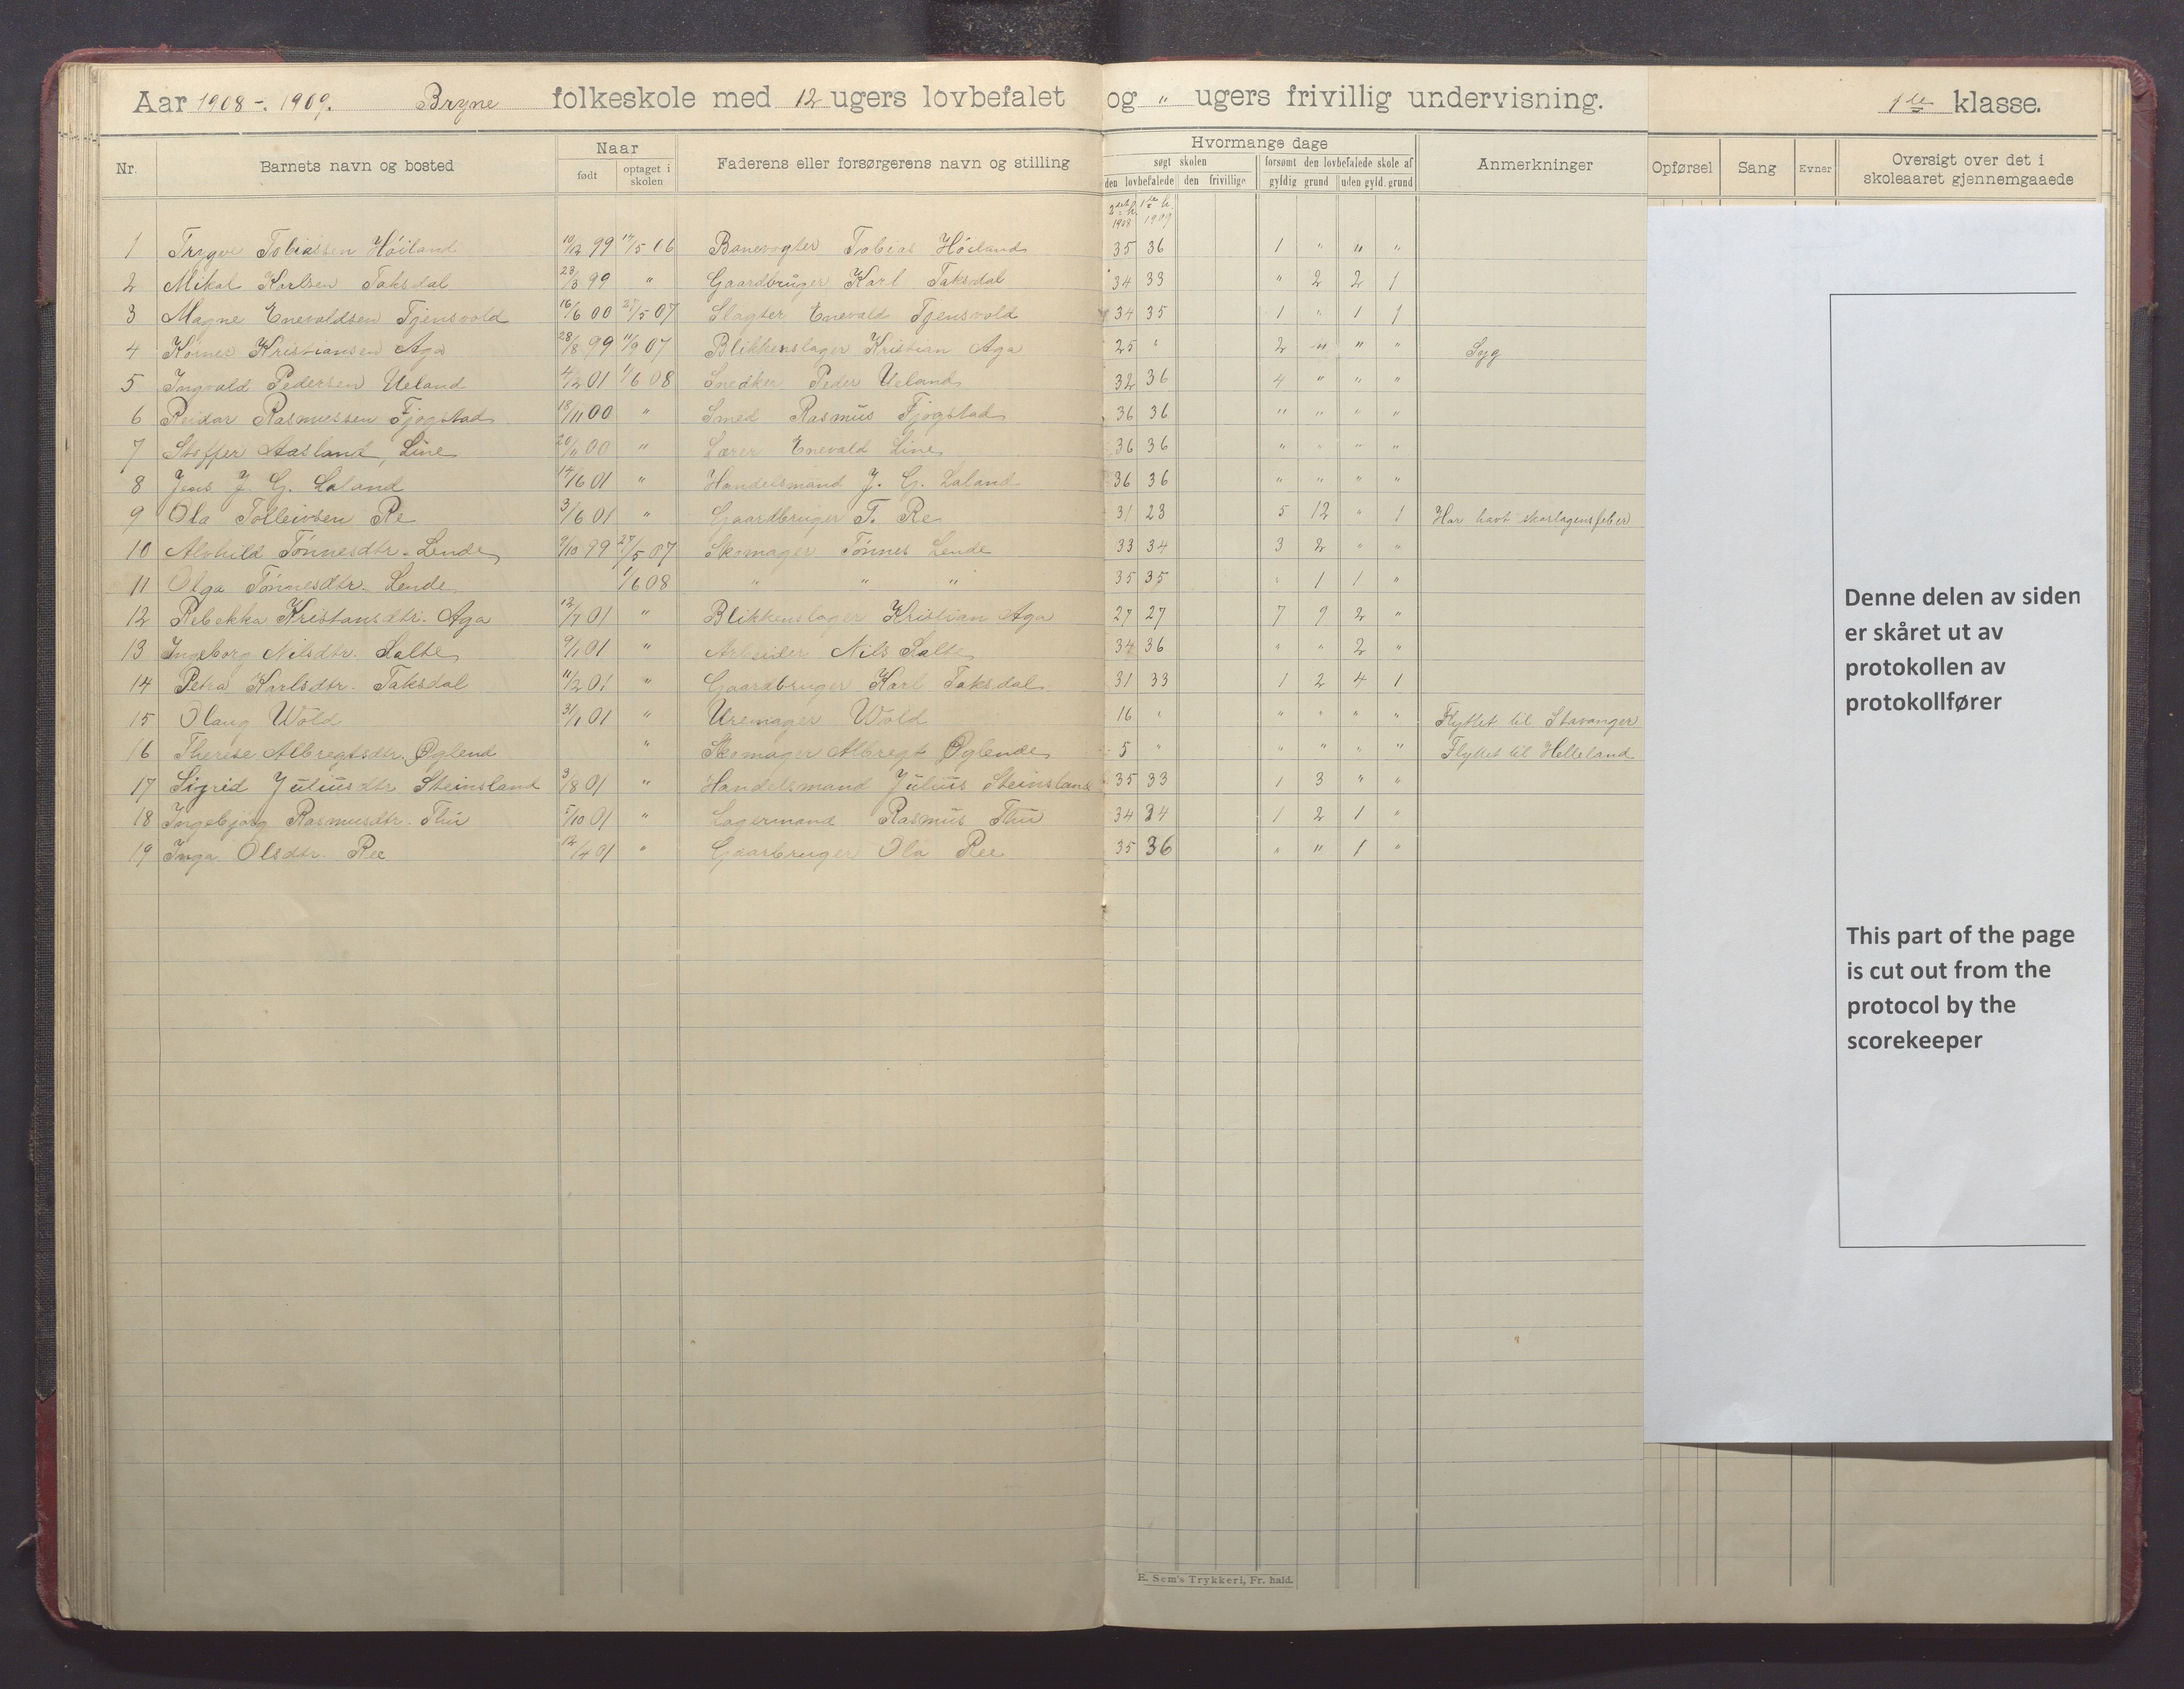 Aar 1908 - 1909. Bryne folkeskole med 12 ugers lovbefalet og " ugers frivillig undervisning. 1ste klasse.
Nr. Barnets navn og bosted Naar født optaget i skolen Faderens eller forsørgerens navn og stilling Hvormange dage søgt skolen den lovbefalede den frivillige forsømt den lovbefalede skole af gyldig grund uden gyld. grund Anmerkninger Opførsel Sang Evner Oversigt over det i skoleaaret gjennemgaaede
2det h. 1908 1ste h. 1909
1 Trygve Tobiassen Höiland 10/12 99 14/5 06 Banevogter Tobias Höiland 35 36 1 " " "
2 Mikal Karlsen Taksdal 23/8 99 " Gaardbruger Karl Taksdal 34 33 " 2 2 1
3 Magne Enevaldsen Tjensvold 16/6 00 27/5 07 Slagter Enevald Tjensvold 34 35 1 " 1 1
4 Kristiansen Aga 28/8 99 11/9 07 Blikkenslager Kristian Aga 25 " 2 " " " Syg
5 Ingvald Pedersen Ueland 4/2 01 1/6 08 Snedker Peder Ueland 32 36 4 " " "
6 Reidar Rasmussen Fjogstad 18/11 00 " Smed Rasmus Fjogstad 36 36 " " " "
7 Steffer Aasland, Line 20/11 00 " Lærer Enevald Line 36 36 " " " "
8 Jens J. G. Laland 14/6 01 " Handelsmand J. G. Laland 36 36 " " " "
9 Ola Tolleivsen Re 3/6 01 " Gaardbruger T. Re 31 23 5 12 " 1 Har havt skarlagensfeber
10 Alvhild Tönnesdtr. Lende 9/10 99 27/5 07 Skomager Tönnes Lende 33 34 3 2 " "
11 Olga Tönnesdtr. Lende 1/6 08 " " " 35 35 " 1 1 "
12 Rebekka Kristansdtr. Aga 12/7 01 " Blikkenslager Kristian Aga 27 27 7 9 2 "
13 Ingeborg Nilsdtr. Salte 9/1 01 " Arbeider Nils Salte 34 36 " " 2 "
14 Petra Karlsdtr. Taksdal 11/2 01 " Gaardbruger Karl Taksdal 31 33 1 2 4 1
15 Olaug Wold 31/1 01 " Uremager Wold 16 " " " " " Flyttet til Stavanger
16 Therese Albregtsdtr. Øglend " Skomager Albregt Øglende 5 " " " " " Flyttet til Helleland
17 Sigrid Juliusdtr Steinsland 3/8 01 " Handelsmand Julius Steinsland 35 33 1 3 " "
18 Ingebjörg Rasmusdtr. Thu 5/10 01 " Lagermand Rasmus Thu 34 34 1 2 1 "
19 Inga Olsdtr. Ree 12/4 01 " Gaarbruger Ola Ree 35 36 " " 1 "
Denne delen av siden
er skåret ut av
protokollen av
protokollfører
This part of the page
is cut out from the
protocol by the
scorekeeper
E. Sem's Trykkeri, Fr. hald.